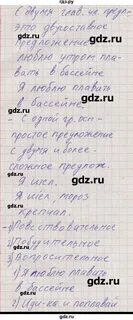 гдз.ру
С двумя глав. чл. предл -
это двусоставное
предложение
Я люблю утром пла-
вать в бассейне
Я люблю плавать
в бассейне.
- С одной гр. осн -
простое предложение
С двумя и более -
сложное предлож.
Я шел.
Я шел, мороз
крепчал.
1) Повествовательное
2) Побудительное
3) Вопросительное
1) Я люблю плавать
в бассейне
2) Иди-ка и поплавай
gdz.ru